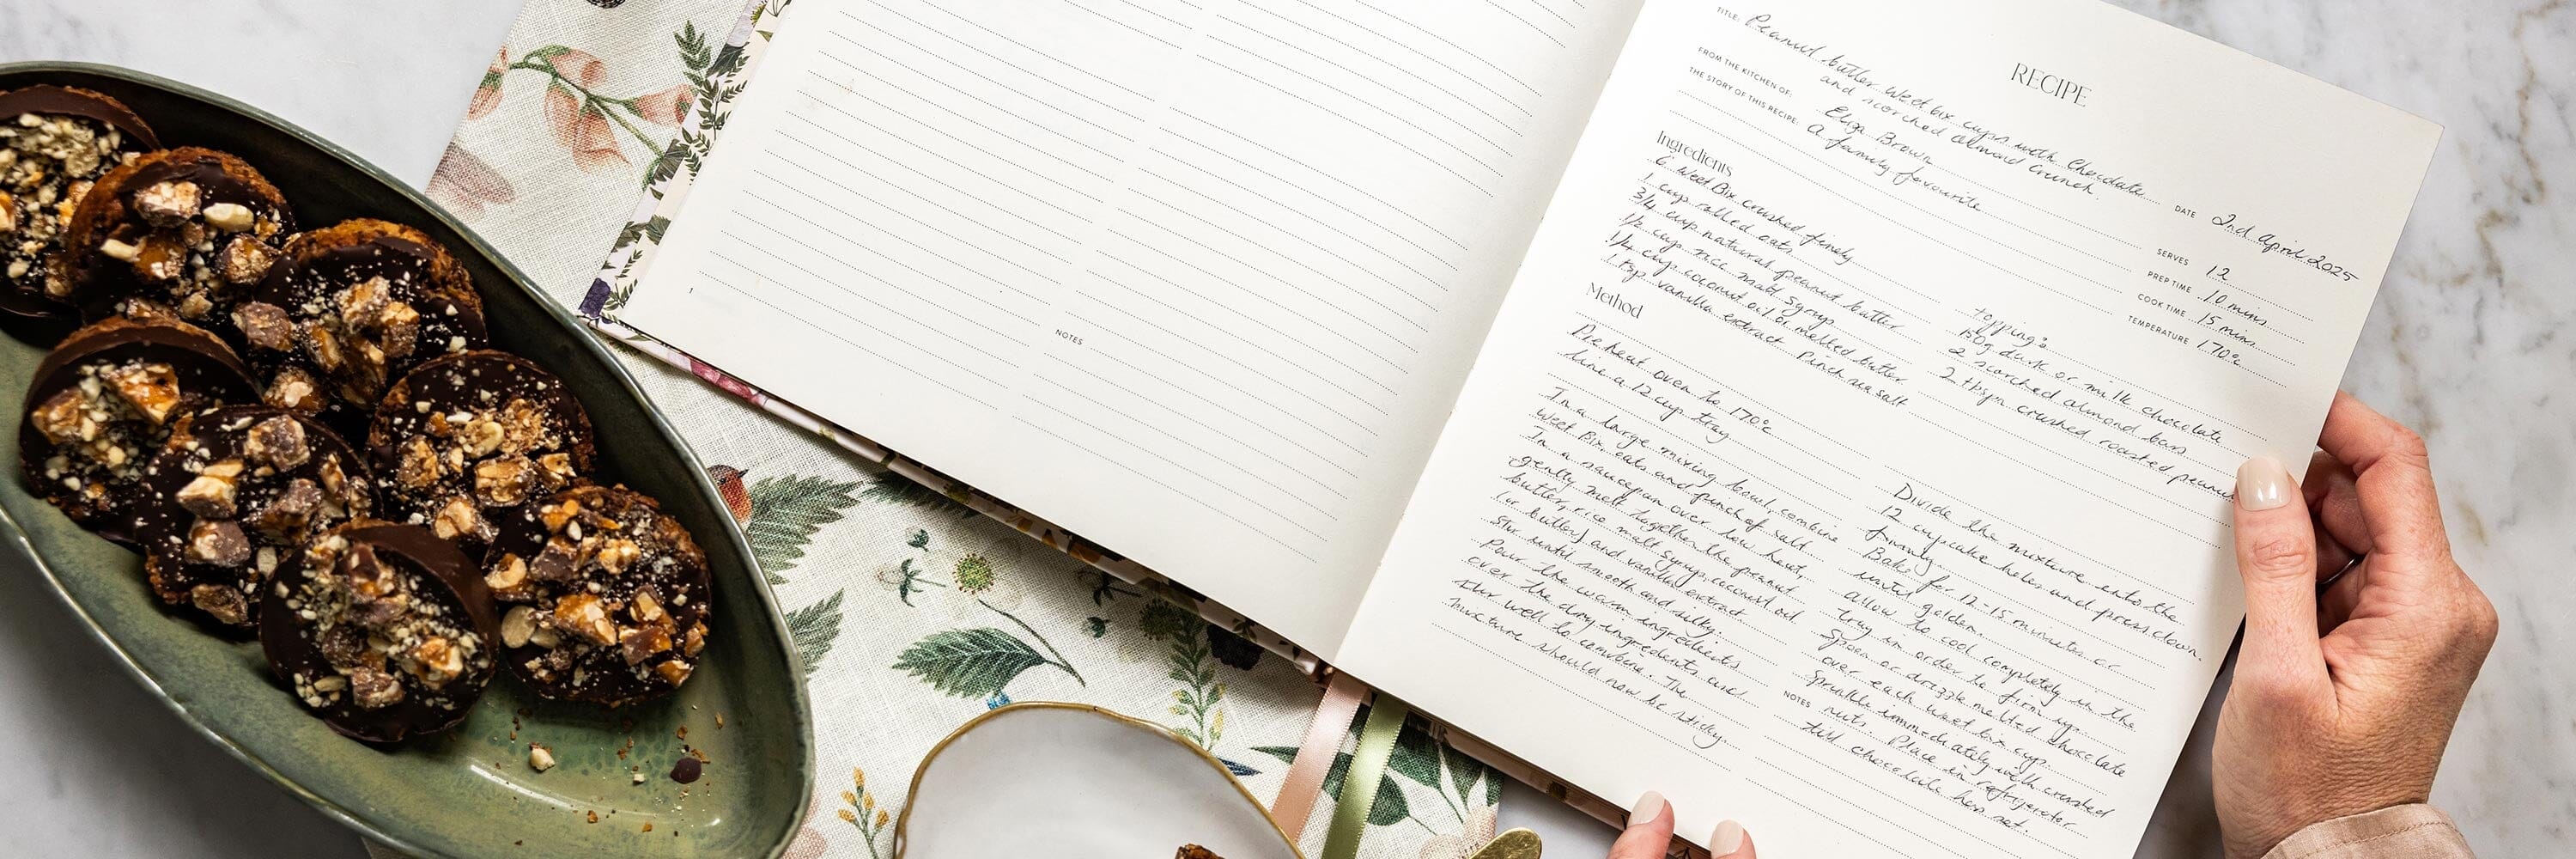 NOTES
RECIPE
TITLE: Peanut butter Weet bix cups with Chocolate
and scorched almond Crunch.
DATE 2nd April 2025
FROM THE KITCHEN OF: Eliza Brown
THE STORY OF THIS RECIPE: a family favourite
SERVES 12
PREP TIME 10 mins
COOK TIME 15 mins
TEMPERATURE 170°c
Ingredients
6 Weet Bix crushed finely
1 cup rolled oats
3/4 cup natural peanut butter
1/2 cup rice malt syrup
1/4 cup coconut oil or melted butter
1 tsp vanilla extract Pinch sea salt
topping:
150g dark or milk chocolate
2 scorched almond bars
2 tbspn crushed roasted peanuts
Method
Preheat oven to 170°c
line a 12 cup tray
In a large mixing bowl, combine
Weet Bix, oats and pinch of salt.
In a saucepan over low heat,
gently melt together the peanut
butter, rice malt syrup, coconut oil
(or butter) and vanilla extract.
Stir until smooth and silky.
Pour the warm ingredients
over the dry ingredients and
stir well to combine. The
mixture should now be sticky.
Divide the mixture into the
12 cupcake holes, and press down
firmly.
Bake for 12-15 minutes or
until golden.
allow to cool completely in the
tray in order to firm up.
Spoon or drizzle melted chocolate
over each weet bix cup.
Sprinkle immediately with crushed
NOTES nuts. Place in refrigerator
till chocolate has set.